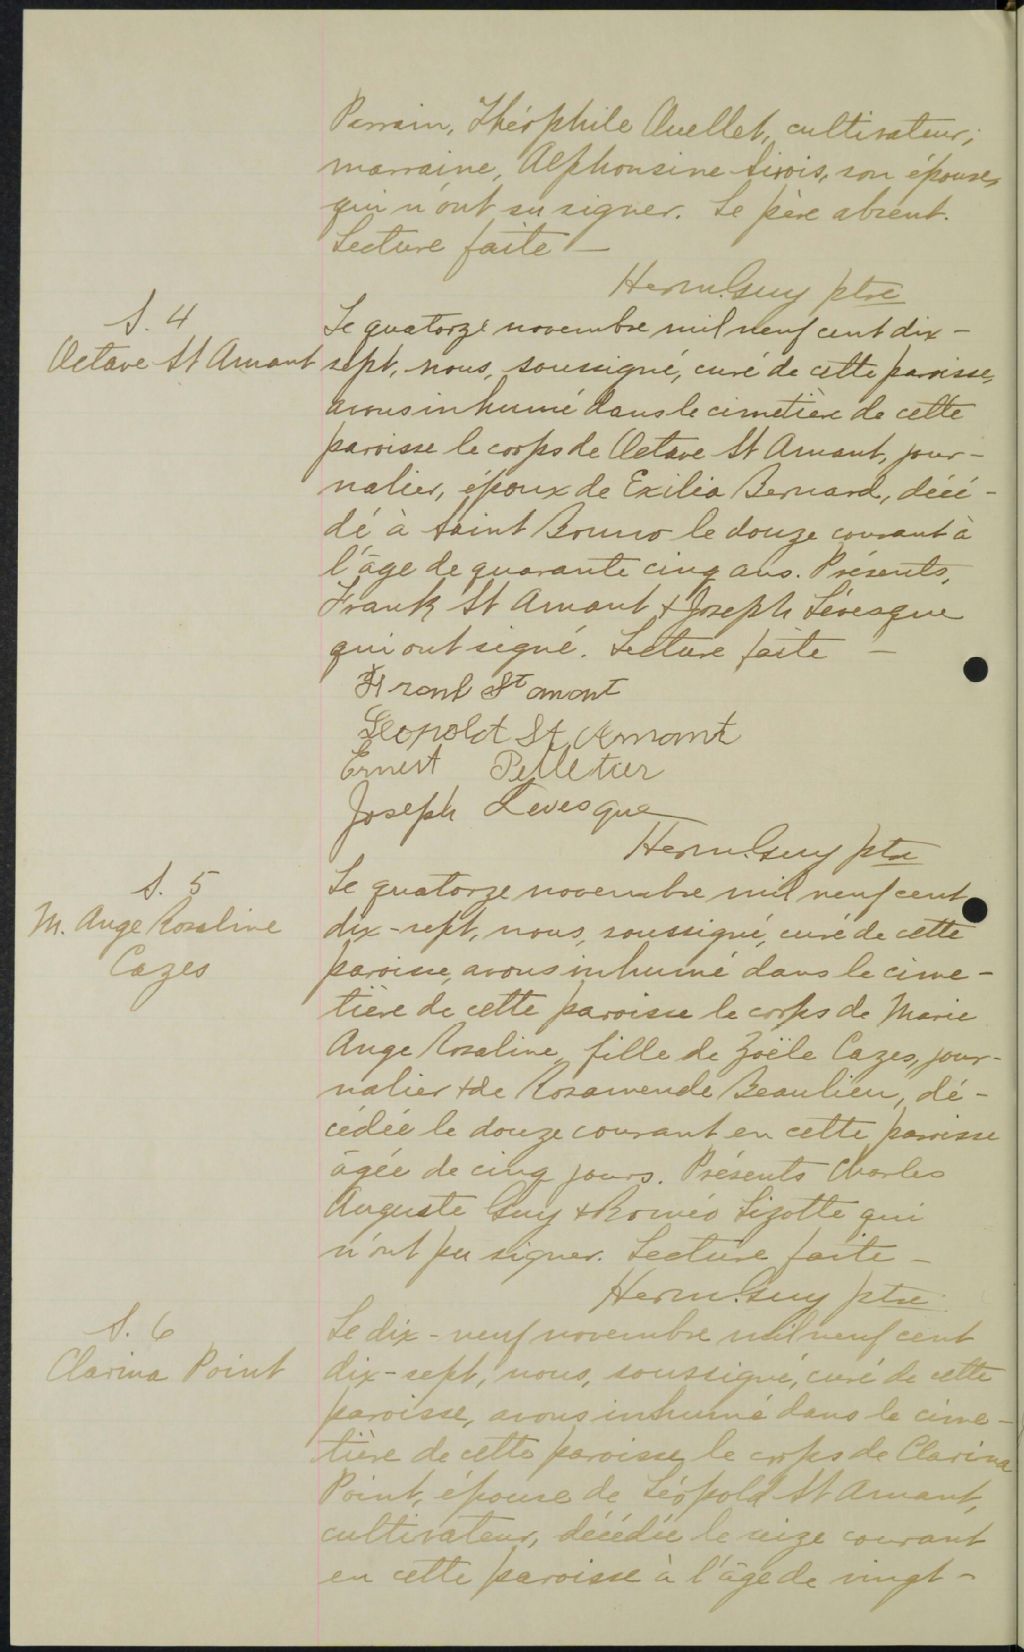 Parrain, Théophile Ouellet, cultivateur;
marraine, Alphonsine Sirois, son épouse,
qui n'ont su signer. Le père absent.
Lecture faite —
Herm. Guy ptre
S. 4
Octave St Amant
Le quatorze novembre mil neuf cent dix-
sept, nous, soussigné, curé de cette paroisse,
avons inhumé dans le cimetière de cette
paroisse le corps de Octave St Amant, jour-
nalier, époux de Exilia Bernard, décé-
dé à Saint Bruno le douze courant à
l'âge de quarante cinq ans. Présents,
Frank St Amant & Joseph Lévesque
qui ont signé. Lecture faite —
Frank St amant
Leopold St Amant
Ernest Pelletier
Joseph Levesque
Herm. Guy ptre
S. 5
M. Ange Rosaline
Cazes
Le quatorze novembre mil neuf cent
dix-sept, nous, soussigné, curé de cette
paroisse, avons inhumé dans le cime-
tière de cette paroisse le corps de Marie
Ange Rosaline, fille de Zoële Cazes, jour-
nalier & de Rosawende Beaulieu, dé-
cédée le douze courant en cette paroisse
âgée de cinq jours. Présents Charles
Auguste Guy & Roméo Lizotte qui
n'ont pu signer. Lecture faite —
Herm. Guy ptre
S. 6
Clarina Point
Le dix-neuf novembre mil neuf cent
dix-sept, nous, soussigné, curé de cette
paroisse, avons inhumé dans le cime-
tière de cette paroisse le corps de Clarina
Point, épouse de Léopold St Amant,
cultivateur, décédée le seize courant
en cette paroisse à l'âge de vingt-